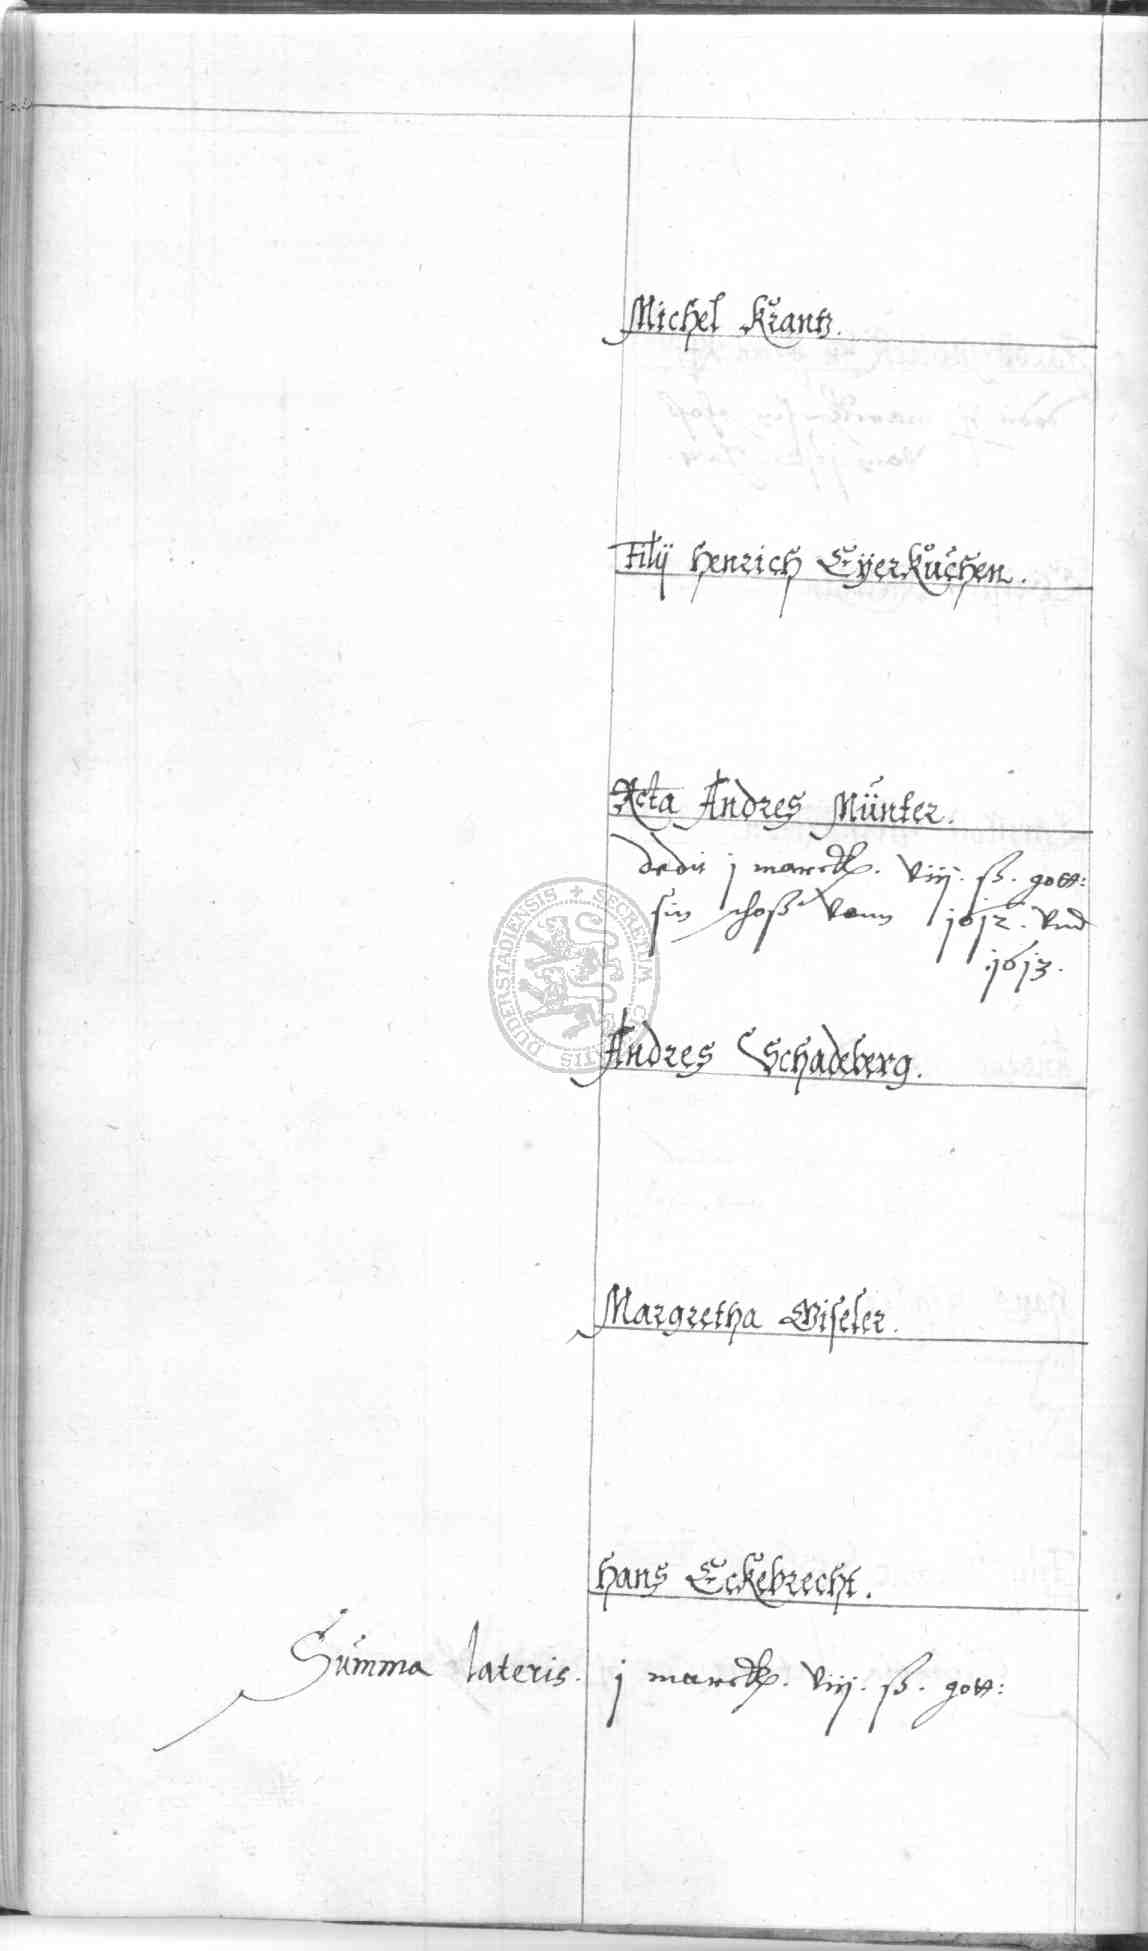 Michel Krantz.
Filij Henrich Eÿerkuchen.
Relicta Andres Münter.
dedit j marck. viij. ß. gott:
sin schoß vonn 1612. vnd
.1613.
SECRETUM CIVITATIS DUDERSTADIENSIS
Andres Schadeberg.
Margretha Giseler.
Hans Eckebrecht.
Summa lateris. j marck. viij. ß. gott: